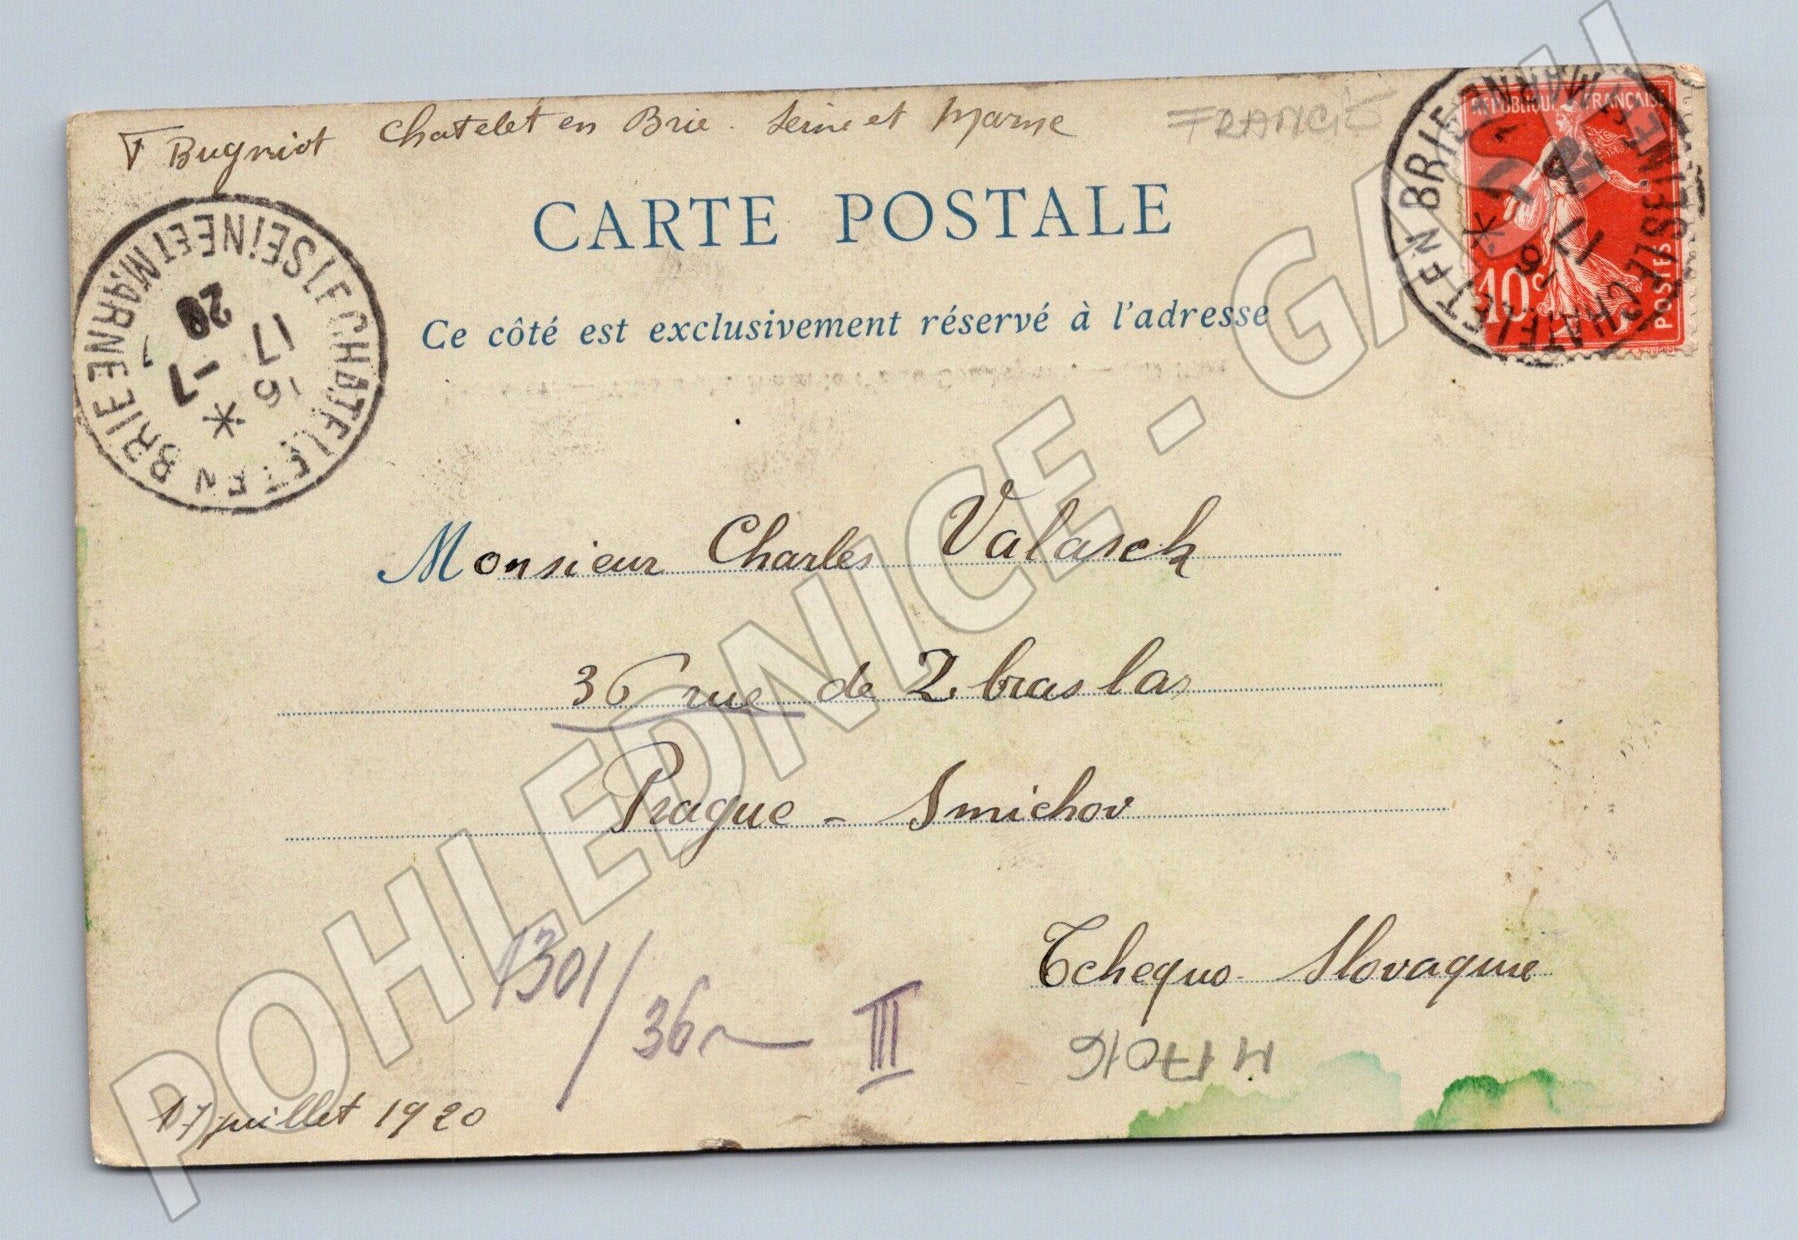 F Bugniot Chatelet en Brie. Seine et Marne
FRANCIE
CARTE POSTALE
Ce côté est exclusivement réservé à l'adresse
RÉPUBLIQUE FRANÇAISE
10c
POSTES
LE CHATELET EN BRIE
SEINE ET MARNE
17
LE CHATELET EN BRIE
SEINE ET MARNE
16
17 -7
20
Monsieur Charles Valasek
36 rue de Zbraslav
Prague - Smichov
Tchequo-Slovaquie
1301/
36
III
M17016
17 juillet 1920
POHLEDNICE - GASH